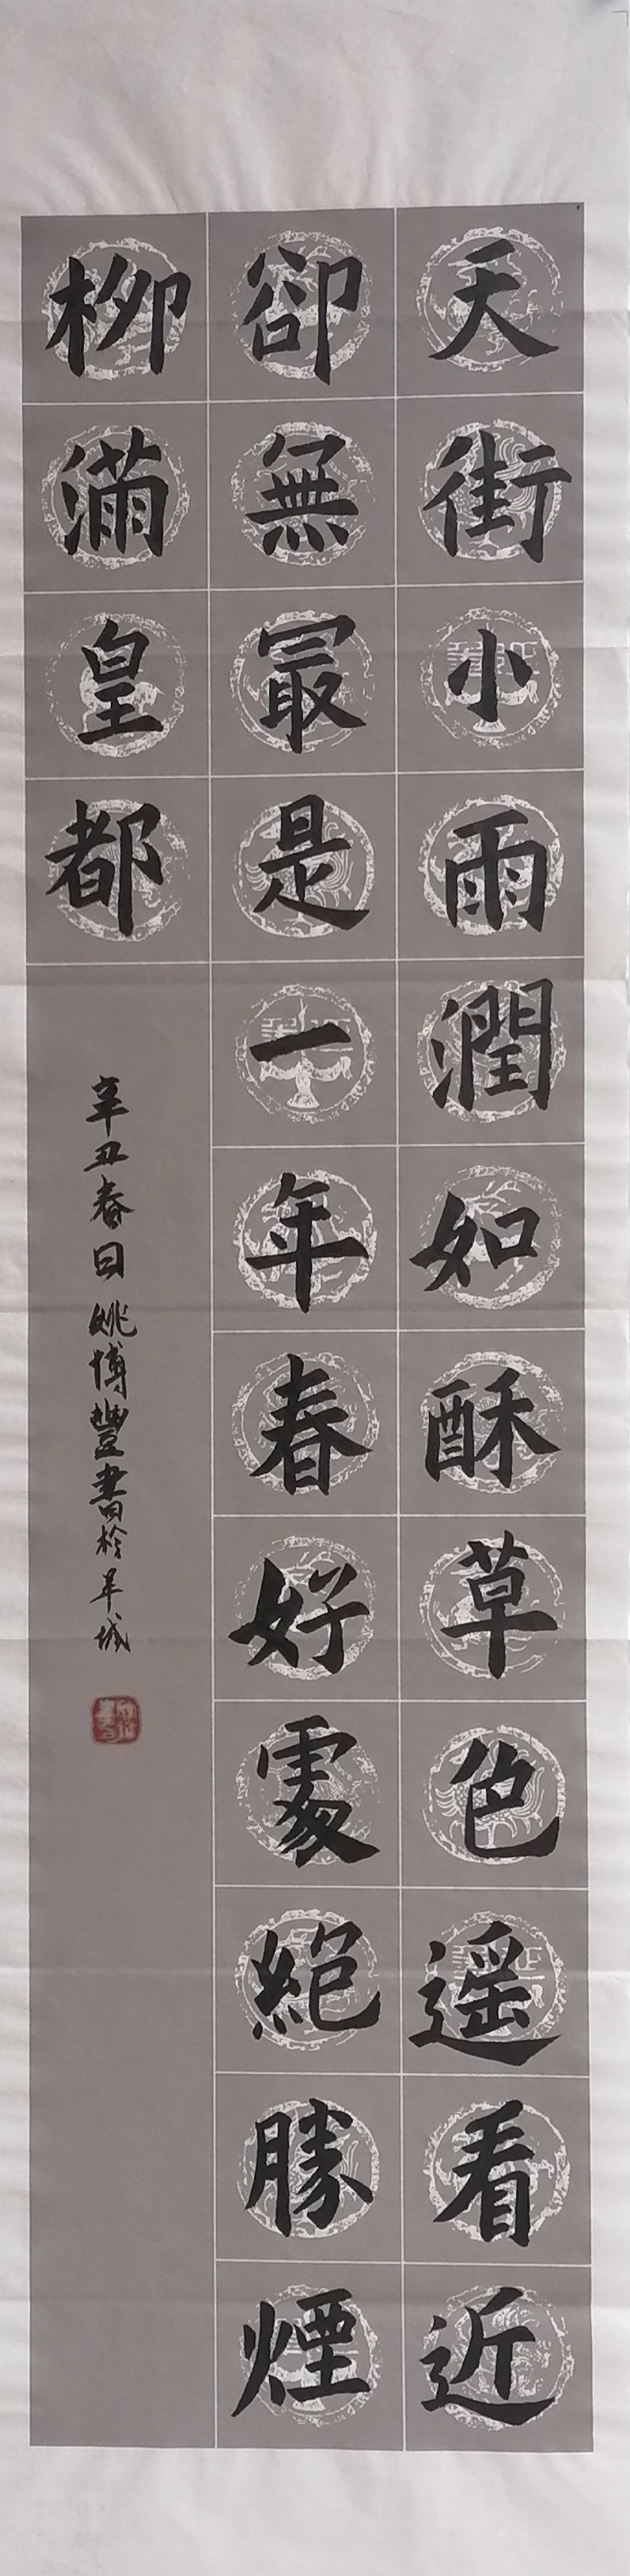 天街小雨潤如酥草色遥看近
卻無最是一年春好處絕勝煙
柳滿皇都
辛丑春日姚博豐書於羊城